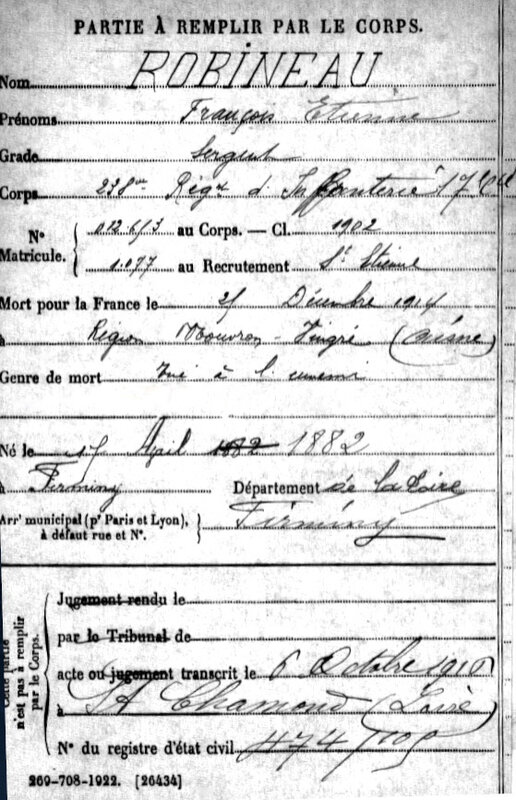 PARTIE À REMPLIR PAR LE CORPS.
Nom ROBINEAU
Prénoms François Etienne
Grade Sergent
Corps 238me Régt d'Infanterie 17e Cie
N° Matricule. { 012.613 au Corps. — Cl. 1902
1.077 au Recrutement St Etienne
Mort pour la France le 25 Décembre 1914
à Région Nouvron - Vingré (Aisne)
Genre de mort Tué à l'ennemi
Né le 15 April 1882 1882
à Firminy Département de la Loire
Arrt municipal (pr Paris et Lyon), à défaut rue et N°. } Firminy
Cette partie n'est pas à remplir par le Corps.
Jugement rendu le
par le Tribunal de
acte ou jugement transcrit le 6 Octobre 1916
à St Chamond (Loire)
N° du registre d'état civil 474/
269-708-1922. [26434]